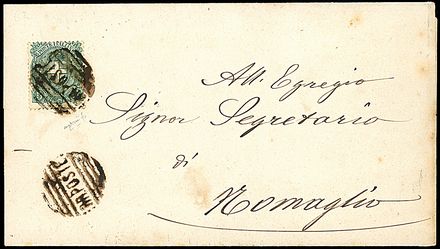 All. Egregio
Signor Segretario
di
Nomaglio
POSTE